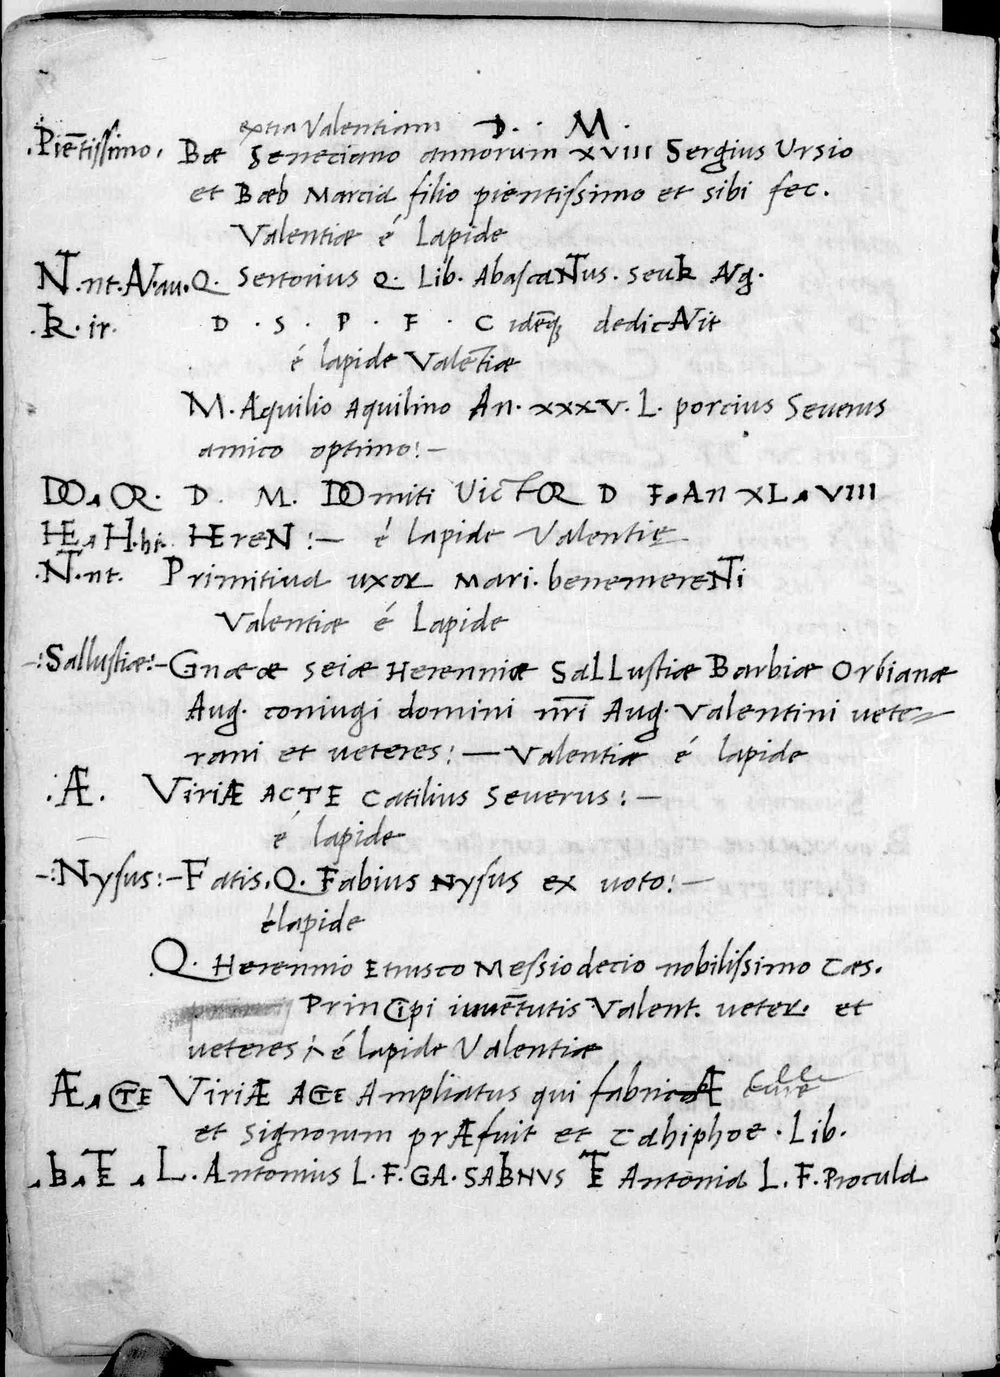 extra Valentiam D. . M.
.Pie͞tissimo. Bæ Seneciano annorum XVIII Sergius Ursio
et Bæb Marcia filio pientissimo et sibi fec.
Valentiæ é Lapide
NT.nt.AV.au.Q. Sertorius Q. Lib. AbascaNTus. seuIR AVg.
.IR. ir. D . S . P . F . C ide͞q; dedicAVit
é lapide Vale͞tiæ
M. Aquilio Aquilino An. XXXV. L. porcius Seuerus
amico optimo:–
DO. OR. D. M. DOmiti VicTOR D F. An XL. VIII
HE. H.hi. HEreN :– é lapide Valentię
.NT.nt. Primitiua uxor Mari. benemereNTi
Valentiæ é Lapide
–:Sallustiæ:– Gnææ seiæ Herenniæ SalLustiæ Barbiæ Orbianæ
Aug. coniugi domini nr͞i Aug. Valentini uete=
rani et ueteres:— Valentiæ é lapide
.Æ. ViriÆ ACTE Catilius Seuerus:–
é lapide
–:Nysus:– Fatis. Q. Fabius Nysus ex uoto:–
é lapide
Q. Herennio Etrusco Messio decio nobilissimo Cæs.
PrinCipi iuue͞tutis Valent. ueter. et
ueteres :- é lapide Valentiæ
Æ. CTE ViriÆ ACTE Ampliatus qui fabricÆ
et signorum prÆfuit et Cahiphoe . Lib.
.B. TE . L. Antonius L. F. GA. SABNVS TE Antonia L. F. Procula